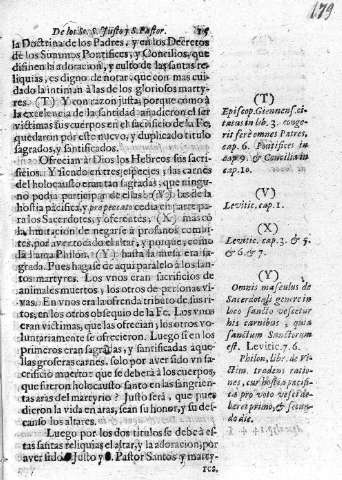 179
De los SS. S. Justo y S. Pastor.
la Doctrina de los Padres, y en los Decretos
de los Summos Pontifices, y Concilios, que
difinen la adoracion, y culto de las santas re
liquias, es digno de notar: que con mas cui
dado la intiman à las de los gloriosos marty
res. (T) Y con razon justa; porque como à
la excelencia de la santidad añadieron el ser
victimas sus cuerpos en el sacrificio de la Fe,
quedaron por este nuevo, y duplicado titulo
sagrados, y santificados.
Ofrecian à Dios los Hebreos sus sacri-
ficios. Y siendo en tres especies; las carnes
del holocausto eran tan sagradas; que ningu
no podia participar de ellas: (V) las de la
hostia pacifica, y pro peccato cedia en parte pa
ra los Sacerdotes, y oferentes; (X) mas co
la limitacion de negarse à profanos combi-
tes, por aver tocado el altar; y porque, como
la llama Philon. (Y) hasta la mesa era sa-
grada. Pues hagase de aqui paralelo à los san
tos martyres. Los vnos eran sacrificios de
animales muertos; y los otros de personas vi
vas. En vnos era la ofrenda tributo de sus ri
tos, en los otros obsequio de la Fe. Los vnos
eran victimas, que las ofrecian; los otros vo-
luntariamente se ofrecieron. Luego si en los
primeros eran sagradas, y santificadas aque-
llas groseras carnes, solo por aver sido vn sa-
crificio muerto: que se deberà à los cuerpos,
que fueron holocausto santo en las sangrien
tas aras del martyrio? Justo serà, que pues
dieron la vida en aras, sean su honor, y su des-
canso los altares.
Luego por los dos titulos se debe à es-
tas santas reliquias el altar, y la adoracion, por
aver sido S. Justo y S. Pastor Santos y marty-
res.
(T)
Episcop. Giennens. ci
tatus in lib. 3. conge-
rit ferè omnes Patres,
cap. 6. Pontifices in
cap 9. & Concilia in
cap. 10.
(V)
Levitic. cap. 1.
(X)
Levitic. cap. 3. & 5.
& 6. & 7.
(Y)
Omnis masculus de
Sacerdotali genere in
loco sancto vescetur
his carnibus, quia
sanctum Sanctorum
est. Levitic. 7. 6.
Philon, lib. de Vi-
ctim. tradens ratio-
nes, cur hostia pacifi-
ca pro voto vesci de-
beret primo, & secun-
do die.